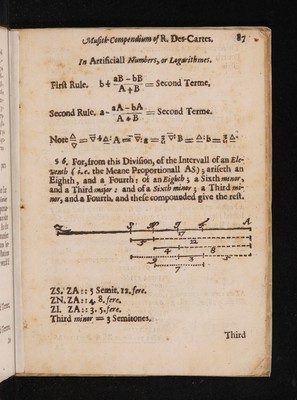 Musick-Compendium of R. Des-Cartes. 87
In Artificiall Numbers, or Logarithmes.
First Rule. b + aB - bB / A + B = Second Terme.
Second Rule. a - aA - bA / A + B = Second Terme.
Note
§ 6. For, from this Division, of the Intervall of an Ele-
venth ( i. e. the Meane Proportionall AS) ; ariseth an
Eighth, and a Fourth: of an Eighth ; a Sixth minor,
and a Third major : and of a Sixth minor ; a Third mi-
nor, and a Fourth, and these compounded give the rest.
A
12
4 8
3
7
ZS. ZA :: 5 Semit. 12. fere.
ZN. ZA :: 4. 8. fere.
ZI. ZA :: 3. 5. fere.
Third minor = 3 Semitones.
Third